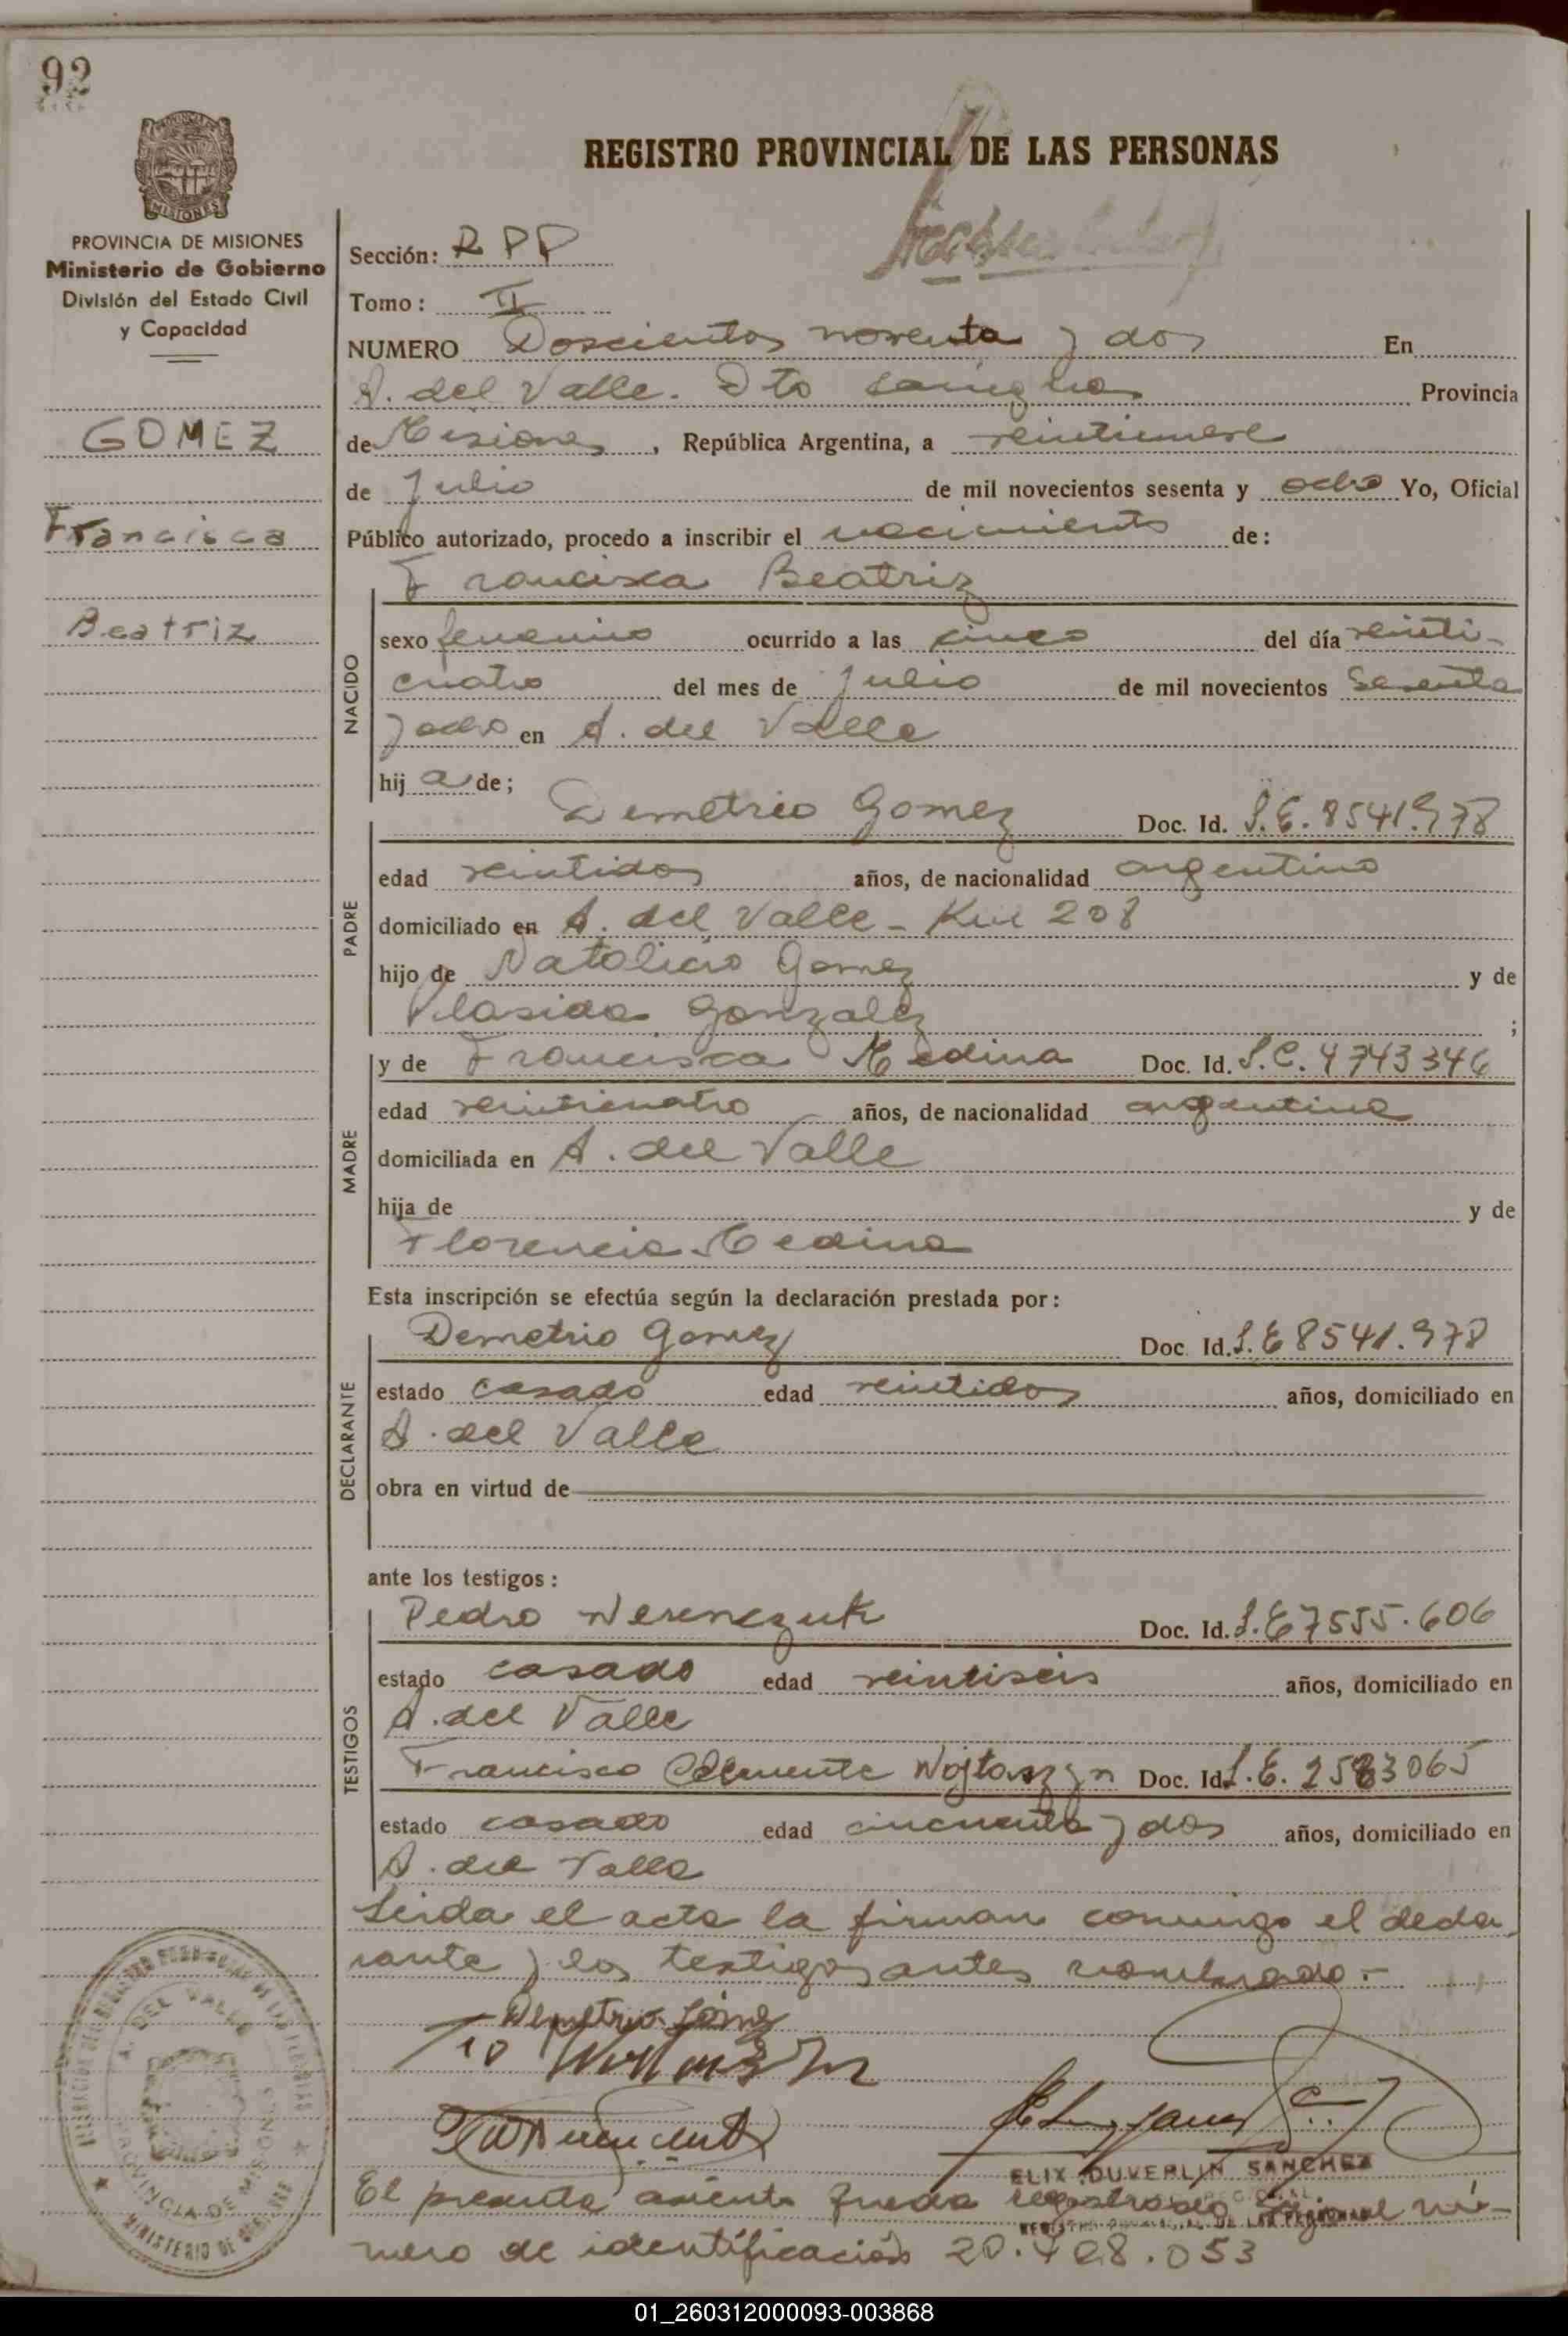 92
PROVINCIA DE MISIONES
Ministerio de Gobierno
División del Estado Civil
y Capacidad
GOMEZ
Francisca
Beatriz
REGISTRO PROVINCIAL DE LAS PERSONAS
Sección: R P P
Tomo: II
NUMERO Doscientos noventa y dos En
A. del Valle. Dto Cainguas Provincia
de Misiones, República Argentina, a veintinueve
de Julio de mil novecientos sesenta y ocho Yo, Oficial
Público autorizado, procedo a inscribir el nacimiento de:
Francisca Beatriz
NACIDO
sexo femenino ocurrido a las cinco del día veinti-
cuatro del mes de Julio de mil novecientos sesenta
y ocho en A. del Valle
hij a de;
PADRE
Demetrio Gomez Doc. Id. L.E. 8541.978
edad veintidos años, de nacionalidad argentino
domiciliado en A. del Valle - Km 208
hijo de Natalicio Gomez y de
Plasida Gonzalez ;
MADRE
y de Francisca Medina Doc. Id. L.C. 4743346
edad veinticuatro años, de nacionalidad argentina
domiciliada en A. del Valle
hija de y de
Florencia Medina
Esta inscripción se efectúa según la declaración prestada por:
DECLARANTE
Demetrio Gomez Doc. Id. L.E 8541.978
estado casado edad veintidos años, domiciliado en
A. del Valle
obra en virtud de
ante los testigos:
TESTIGOS
Pedro Werenczuk Doc. Id. L.E 7555.606
estado casado edad veintiseis años, domiciliado en
A. del Valle
Francisco Clemente Wojtaszyn Doc. Id. L.E. 2583065
estado casado edad cincuenta y dos años, domiciliado en
A. del Valle
Leida el acta la firman conmigo el decla
rante y los testigos antes nombrado.-
Demetrio Gómez
ELIX DUVERLIN SANCHEZ
REGISTRO PROVINCIAL DE LAS PERSONAS
El presente asiento queda registrado bajo el nú-
mero de identificación 20.428.053
A. DEL VALLE
PROVINCIA DE MISIONES
MINISTERIO DE GOBIERNO
01_260312000093-003868